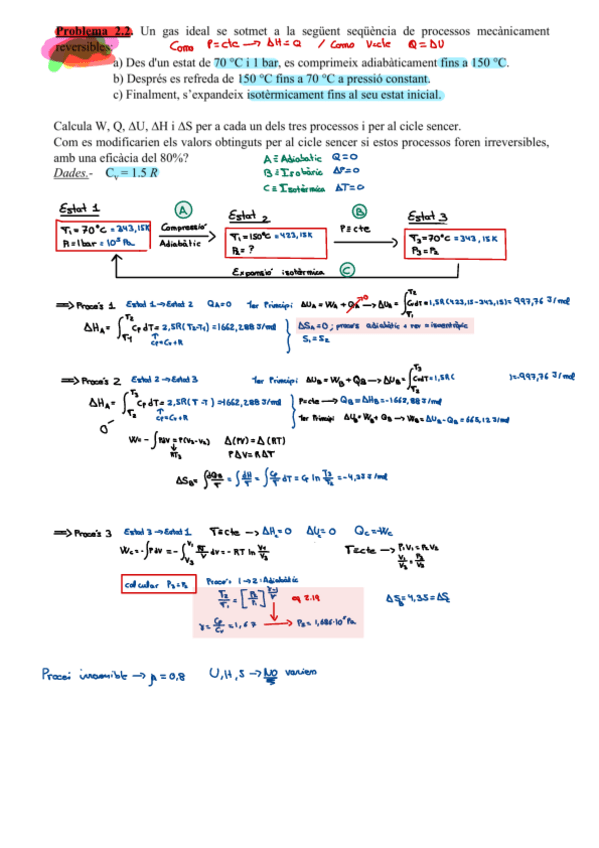 Problema 2.2. Un gas ideal se sotmet a la següent seqüència de processos mecànicament
reversibles: Como P=cte → ΔH=Q / Como V=cte Q=ΔU
a) Des d'un estat de 70 °C i 1 bar, es comprimeix adiabàticament fins a 150 °C.
b) Després es refreda de 150 °C fins a 70 °C a pressió constant.
c) Finalment, s'expandeix isotèrmicament fins al seu estat inicial.
Calcula W, Q, ΔU, ΔH i ΔS per a cada un dels tres processos i per al cicle sencer.
Com es modificarien els valors obtinguts per al cicle sencer si estos processos foren irreversibles,
amb una eficàcia del 80%?
A ≡ Adiabatic Q=0
Dades.- Cv = 1.5 R
B ≡ Isobàric ΔP=0
C ≡ Isotèrmica ΔT=0
Estat 1
A
Estat 2
B
Estat 3
T1=70°C=343,15K
P1=1bar=10^5 Pa
Compressió
Adiabàtic
T2=150°C=423,15K
P2=?
P=cte
T3=70°C=343,15K
P3=P2
Expansió isotèrmica C
⟹ Procés 1 Estat 1→Estat 2 QA=0 1er Principi ΔUA=WA+QA→ΔUA=∫T1T2 CvdT=1,5R(423,15-343,15)=997,76 J/mol
ΔHA=∫T1T2 CpdT=2,5R(T2-T1)=1662,288 J/mol
Cp=Cv+R
ΔSA=0; procés adiabàtic + rev = isentròpic
S1=S2
⟹ Procés 2 Estat 2→Estat 3 1er Principi ΔUB=WB+QB→ΔUB=∫T2T3 CvdT=1,5R( )=-997,76 J/mol
ΔHA=∫T2T3 CpdT=2,5R(T -T )=1662,288 J/mol
Cp=Cv+R
P=cte→QB=ΔHB=-1662,88 J/mol
1er Principi ΔUB=WB+QB→WB=ΔUB-QB=665,12 J/mol
W=-∫PdV=P(V3-V2) Δ(PV)=Δ(RT)
PΔV=RΔT
ΔSB=∫dQB/T=∫dH/T=∫Cp/T dT=Cp ln T3/T2=-4,35 J/mol
⟹ Procés 3 Estat 3→Estat 1 T=cte→ΔHc=0 ΔUc=0 Qc=-Wc
Wc=-∫PdV=-∫V3V1 RT/V dV=-RT ln V1/V3
T=cte→P1V1=P2V2
V1/V3=P3/P1
calcular P3=P2
Procés 1→2: Adiabàtic
T2/T1=[P2/P1]^(γ-1)/γ eq 2.19
γ=Cp/Cv=1,67 → P2=1,686·10^5 Pa
Procei irreversible→μ=0,8 U,H,S→NO varien